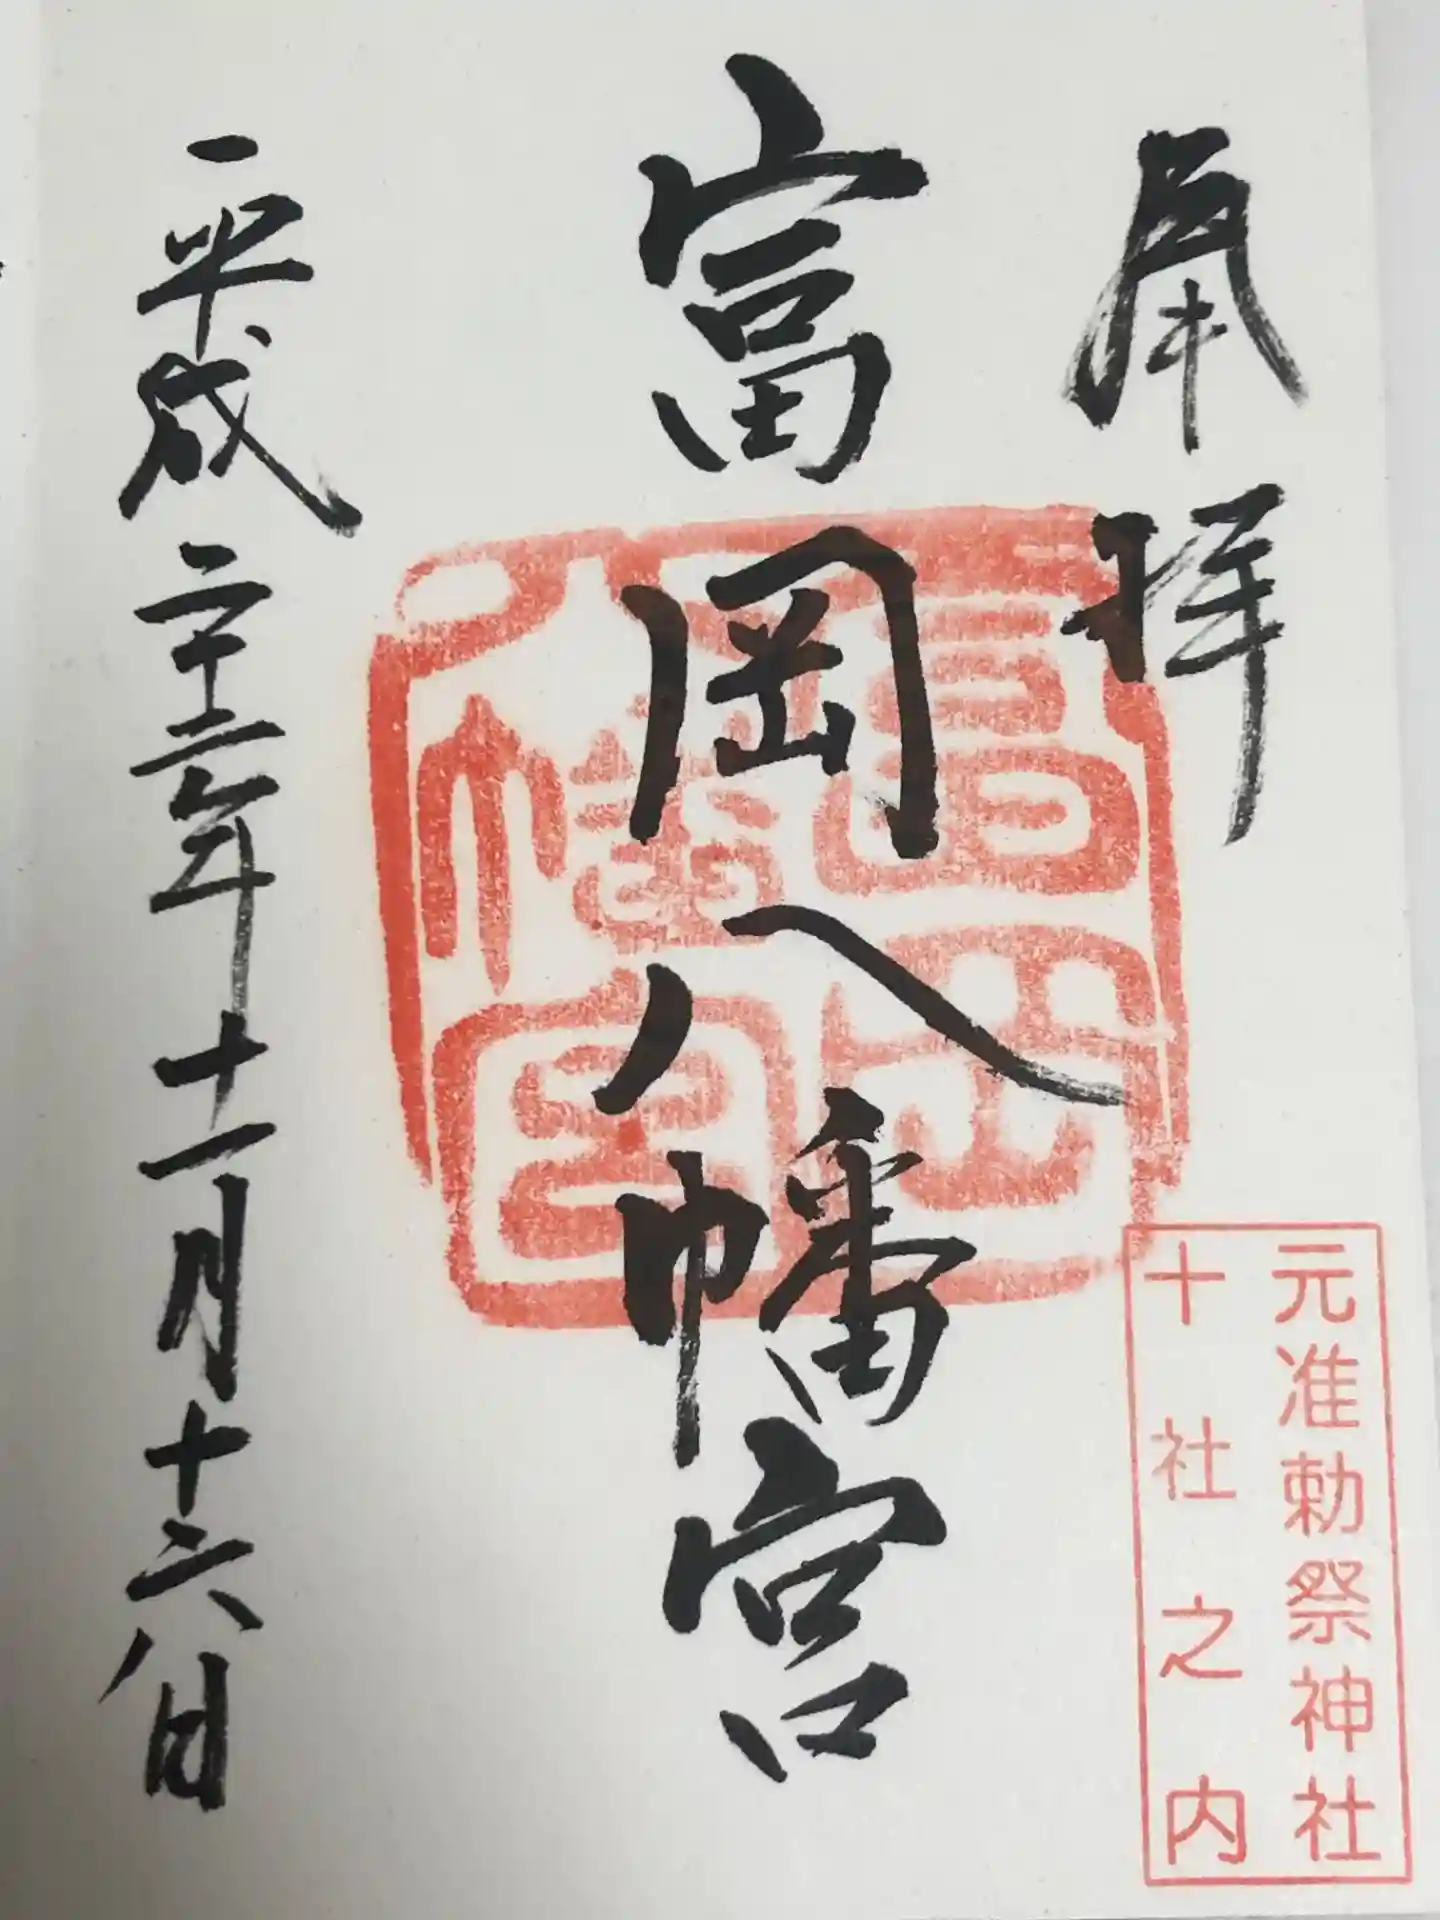 奉拝
富岡八幡宮
平成二十年十一月十六日
富岡八幡宮
元准勅祭神社
十社之内